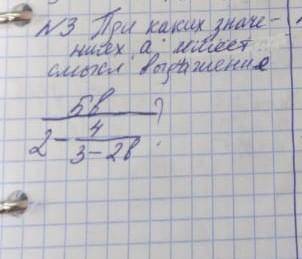 №3 При каких значе-
ниях а имеет
смысл выражение
5в
2 - 4 ?
3 - 2в